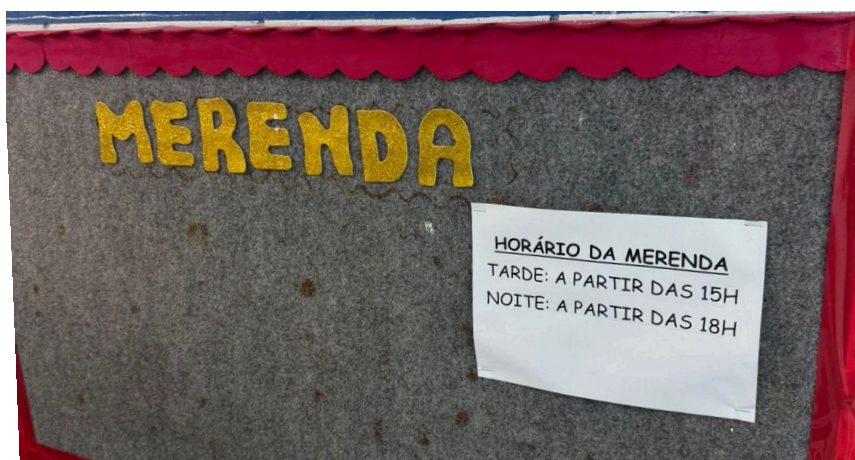 MERENDA
HORÁRIO DA MERENDA
TARDE: A PARTIR DAS 15H
NOITE: A PARTIR DAS 18H